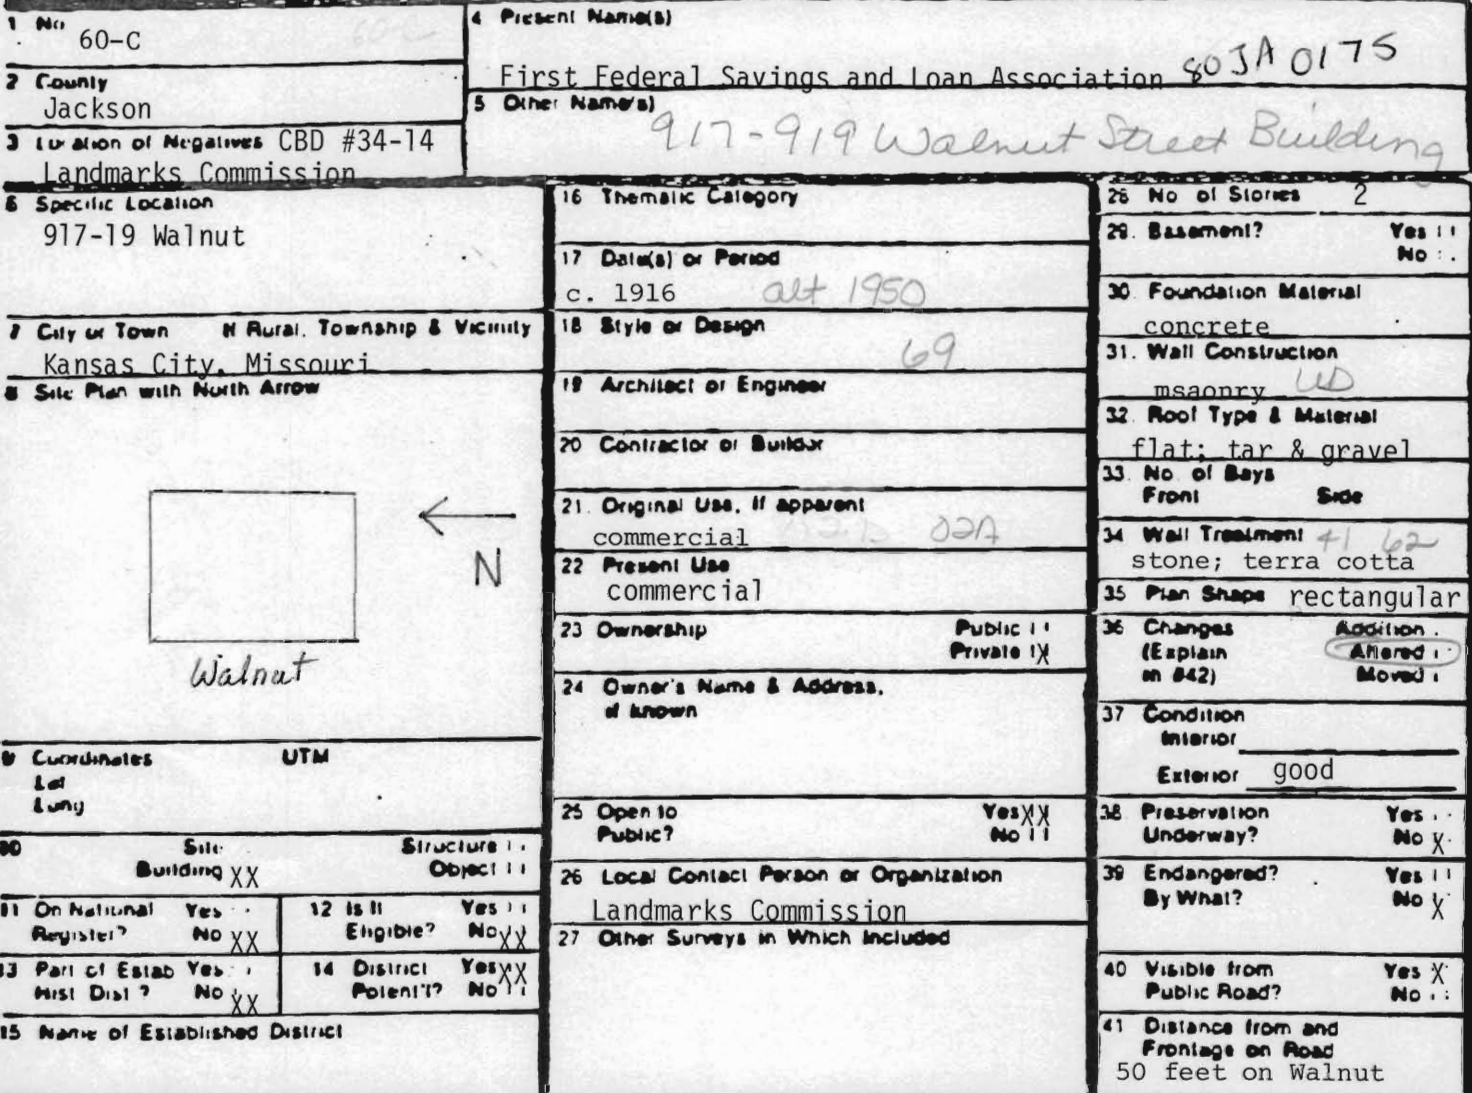 1 No.
60-C
60-C
2 County
Jackson
3 Location of Negatives CBD #34-14
Landmarks Commission
4 Present Name(s)
First Federal Savings and Loan Association 80JA0175
5 Other Name(s)
917-919 Walnut Street Building
6 Specific Location
917-19 Walnut
7 City or Town If Rural, Township & Vicinity
Kansas City, Missouri
8 Site Plan with North Arrow
N
Walnut
9 Coordinates UTM
Lat
Long
10 Site Structure
Building XX Object
11 On National Register? Yes
No XX
12 Is It Eligible? Yes
No XX
13 Part of Estab Hist Dist? Yes
No XX
14 District Potent'l? Yes XX
No
15 Name of Established District
16 Thematic Category
17 Date(s) or Period
c. 1916 alt 1950
18 Style or Design
69
19 Architect or Engineer
20 Contractor or Builder
21. Original Use, If apparent
commercial 02A
22 Present Use
commercial
23 Ownership Public
Private X
24 Owner's Name & Address,
if known
25 Open to Yes XX
Public? No
26 Local Contact Person or Organization
Landmarks Commission
27 Other Surveys in Which Included
28 No of Stories 2
29. Basement? Yes
No
30 Foundation Material
concrete
31. Wall Construction
msaonry UD
32. Roof Type & Material
flat; tar & gravel
33. No. of Bays
Front Side
34 Wall Treatment 41 62
stone; terra cotta
35 Plan Shape rectangular
36 Changes Addition
(Explain Altered
in #42) Moved
37 Condition
Interior
Exterior good
38 Preservation Yes
Underway? No X
39 Endangered? Yes
By What? No X
40 Visible from Yes X
Public Road? No
41 Distance from and
Frontage on Road
50 feet on Walnut